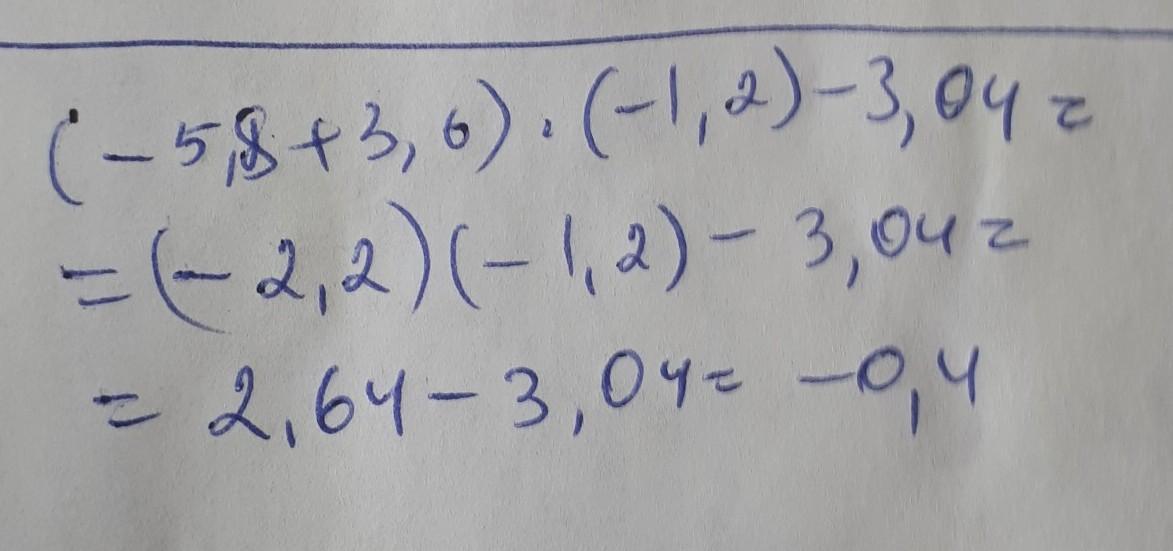 (-5,8+3,6)·(-1,2)-3,04=
=(-2,2)(-1,2)-3,04=
=2,64-3,04=-0,4